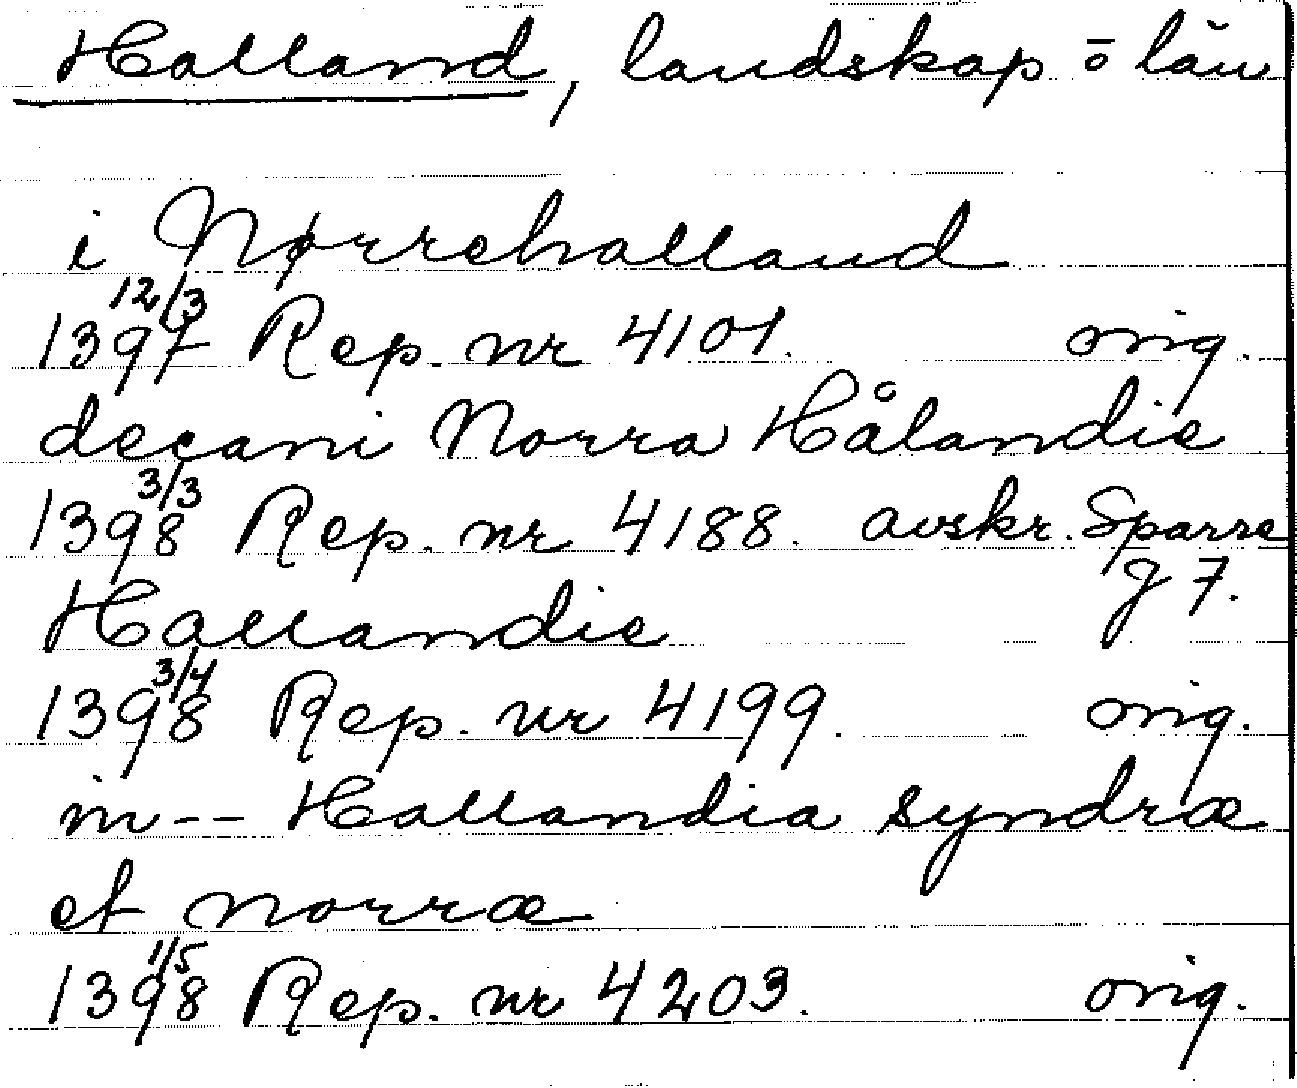 Halland, landskap o län
i Nørrehalland
1397 12/3 Rep. nr 4101. orig.
decani Norra Hålandie
1398 3/3 Rep. nr 4188. avskr. Sparre
g 7.
Hallandie
1398 3/4 Rep. nr 4199. orig.
in -- Hallandia syndræ
et norræ
1398 1/5 Rep. nr 4203. orig.